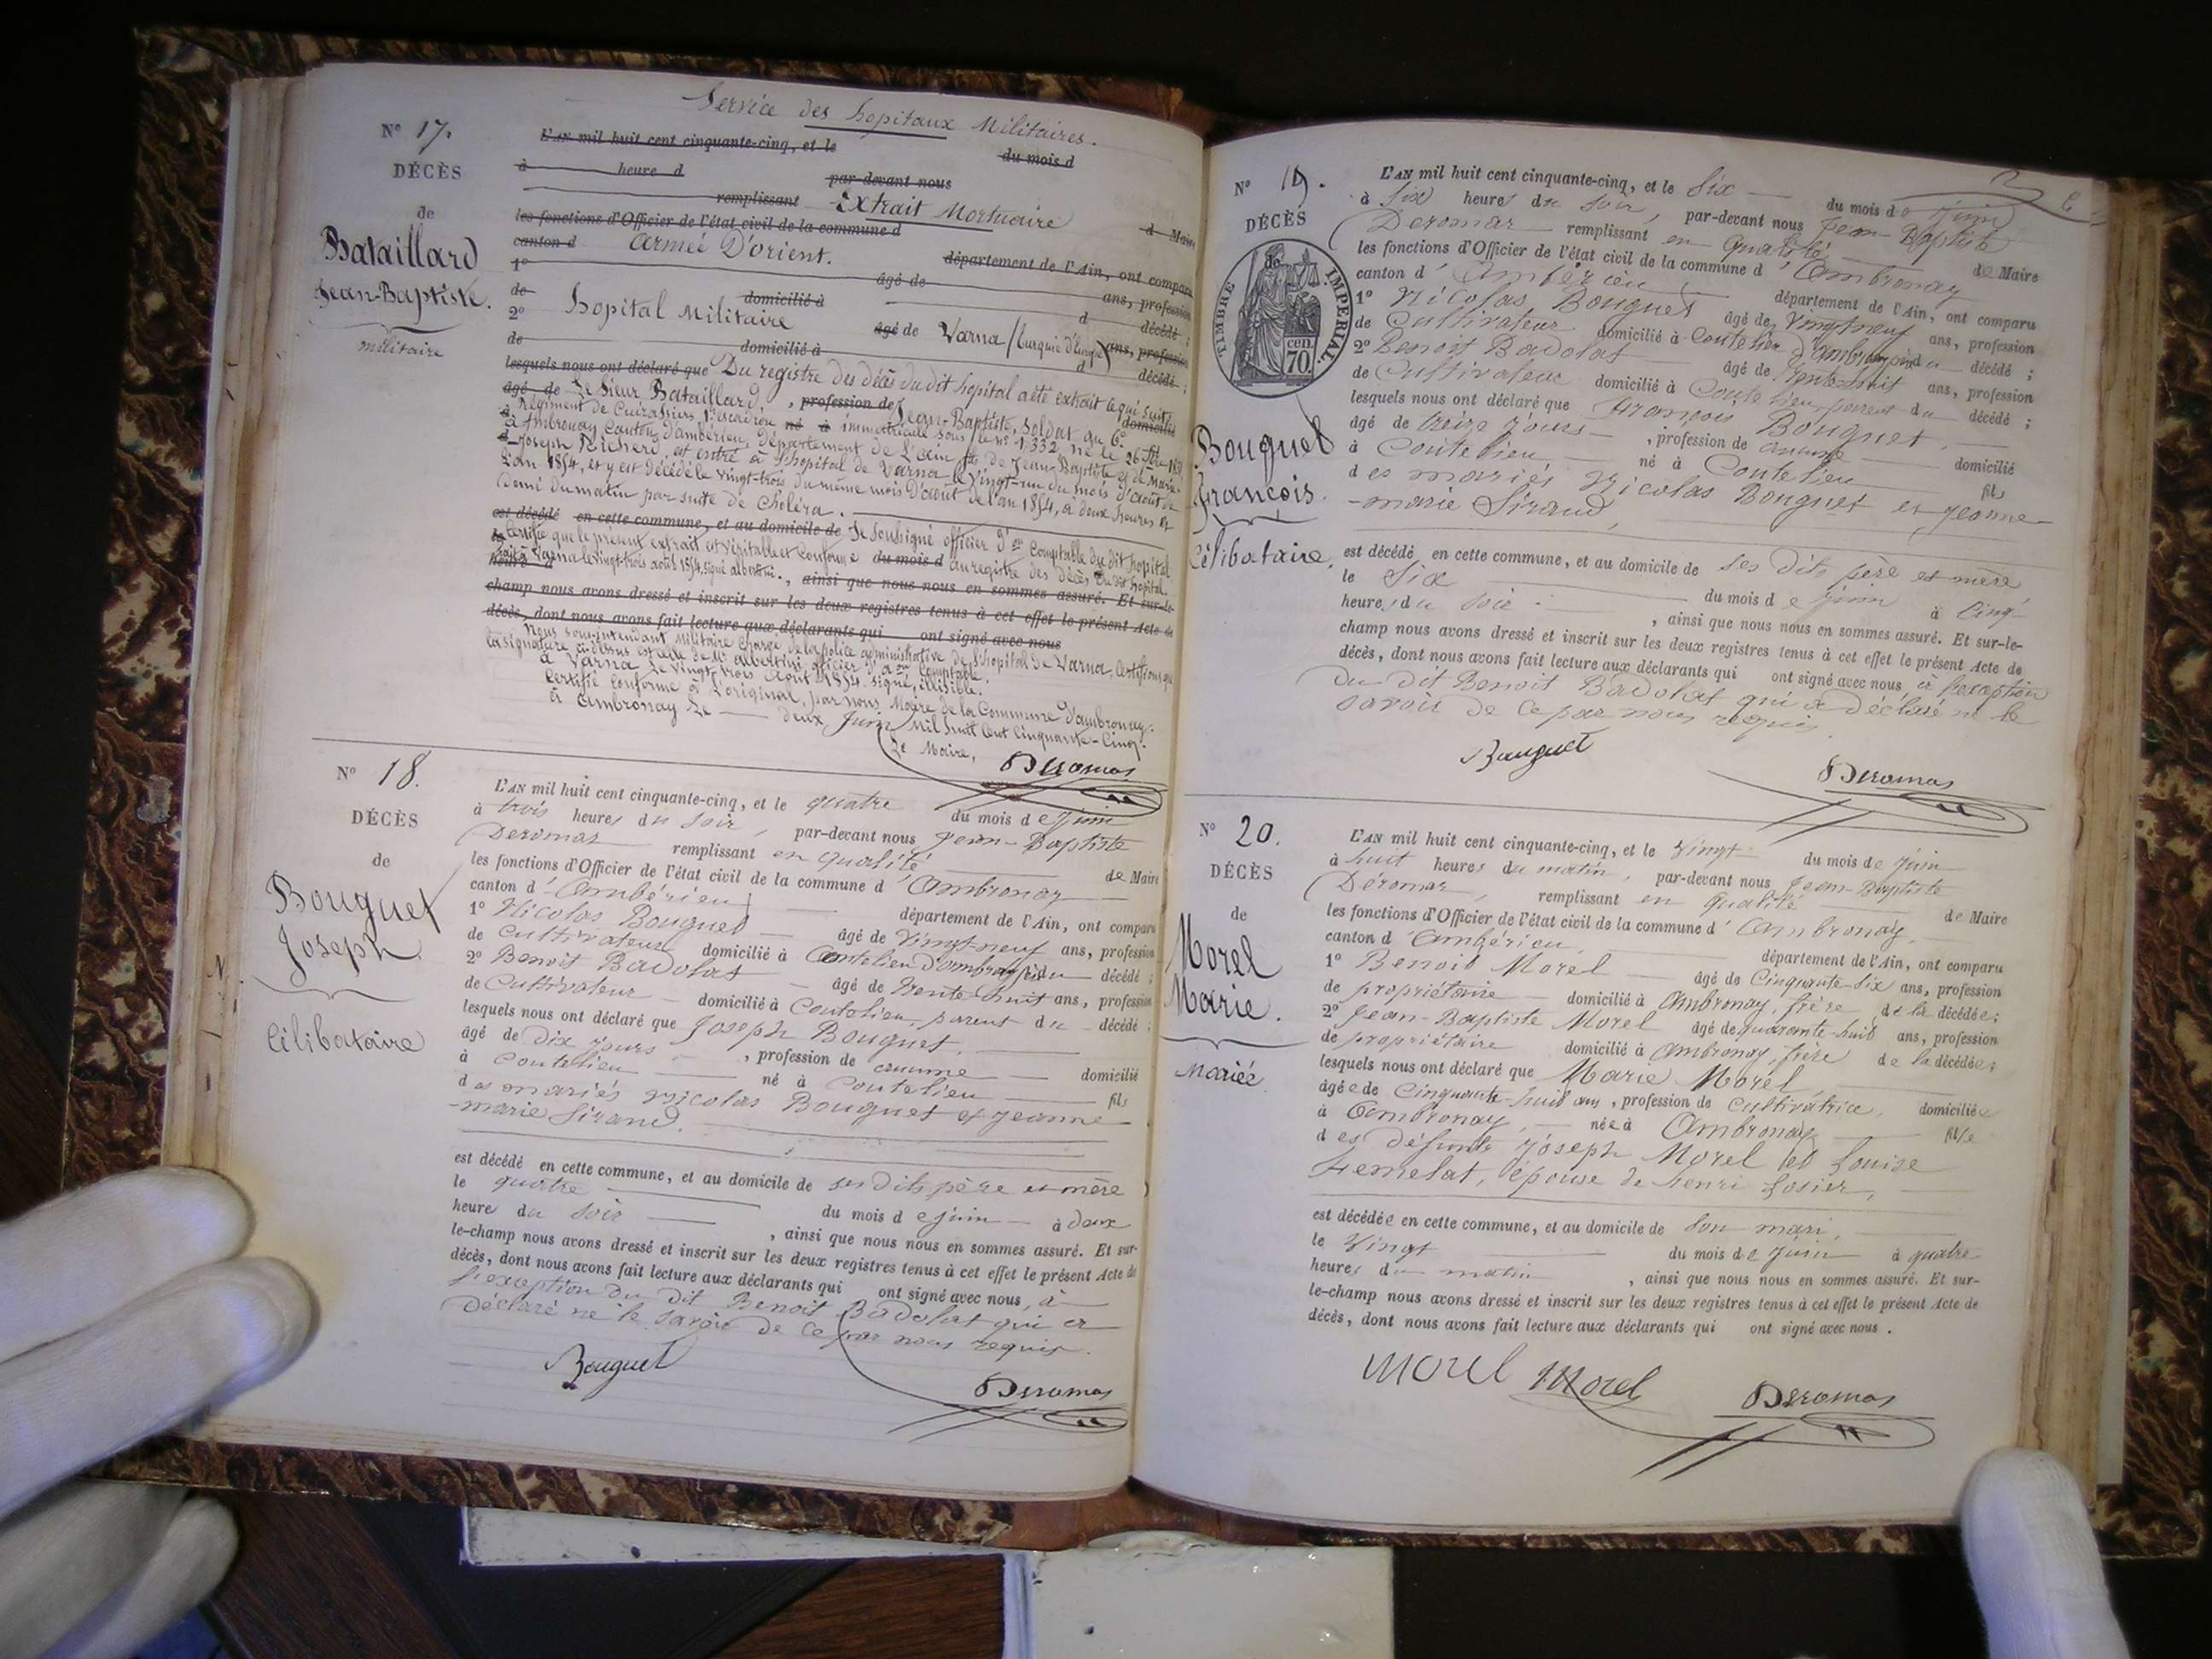 Service des hopitaux Militaires.
N° 17.
DÉCÈS
de
Bataillard
Jean-Baptiste.
militaire
L'AN mil huit cent cinquante-cinq, et le du mois d
à heure d par-devant nous
remplissant Extrait Mortuaire
les fonctions d'Officier de l'état civil de la commune d d Maire
canton d Armée D'orient. département de l'Ain, ont comparu
1° âgé de ans, profession
de domicilié à d décédé ;
2° hopital Militaire âgé de Varna (turquie d'Europe) ans, profession
de domicilié à d décédé ;
lesquels nous ont déclaré que Du registre des décès du dit hopital a été extrait ce qui suit,
âgé de Le Sieur Bataillard, profession de Jean-Baptiste, Soldat au 6e domicilié
à Régiment de Cuirassiers, 1er escadron né à immatriculé sous le n° 1332, né le 26
à Ambronay Canton d'ambérieu, département de L'ain fils de Jean-Baptiste et de Marie-
d Joseph Richerd, est entré à l'hopital de Varna le vingt-un du mois d'août de
L'an 1854, et y est décédé le vingt-trois du même mois D'août de l'an 1854, à deux heures et
demi du matin par suite de Choléra.
est décédé en cette commune, et au domicile de Je Soussigné officier d'on Comptable du dit hopital
le Certifie que le présent extrait est Véritable et Conforme du mois d au registre des décès du dit hopital.
heure d fait à Varna le vingt-trois août 1854, signé albertini., ainsi que nous nous en sommes assuré. Et sur-le-
champ nous avons dressé et inscrit sur les deux registres tenus à cet effet le présent Acte de
décès, dont nous avons fait lecture aux déclarants qui ont signé avec nous
Nous Sous-intendant Militaire chargé de la police administrative de l'hopital de Varna, Certifions que
la signature ci-dessus est celle de Mr albertini, officier d'aon Comptable.
à Varna Le vingt-trois Août 1854. signé, illisible.
Certifié Conforme à L'original, par nous Maire de la Commune d'ambronay.
à Ambronay Le deux Juin Mil huit Cent Cinquante-Cinq.
Le Maire, Deromas
N° 18.
DÉCÈS
de
Bouguet
Joseph
Célibataire
L'AN mil huit cent cinquante-cinq, et le quatre du mois de Juin
à trois heures du soir, par-devant nous Jean-Baptiste
Deromas remplissant en qualité de Maire
les fonctions d'Officier de l'état civil de la commune d'Ambronay
canton d'Ambérieu département de l'Ain, ont comparu
1° Nicolas Bouguet âgé de Vingt-neuf ans, profession
de Cultivateur domicilié à Coutelieu d'ambronay du décédé ;
2° Benoit Badolat âgé de trente-huit ans, profession
de Cultivateur domicilié à Coutelieu, parent du décédé ;
lesquels nous ont déclaré que Joseph Bouguet,
âgé de dix jours, profession de aucune domicilié
à Coutelieu né à Coutelieu fils
des mariés Nicolas Bouguet et Jeanne
-marie Siraud.
est décédé en cette commune, et au domicile de ses dits père et mère
le quatre du mois de Juin à deux
heure du soir, ainsi que nous nous en sommes assuré. Et sur-
le-champ nous avons dressé et inscrit sur les deux registres tenus à cet effet le présent Acte de
décès, dont nous avons fait lecture aux déclarants qui ont signé avec nous, à
l'exception du dit Benoit Badolat qui a
déclaré ne le savoir de ce par nous requis.
Bouguet Deromas
N° 19.
DÉCÈS
de
TIMBRE IMPÉRIAL.
70 cen.
Bouguet
François.
Célibataire.
L'AN mil huit cent cinquante-cinq, et le Six du mois de Juin
à Six heures du soir, par-devant nous Jean-Baptiste
Deromas remplissant en qualité de Maire
les fonctions d'Officier de l'état civil de la commune d'Ambronay
canton d'Ambérieu département de l'Ain, ont comparu
1° Nicolas Bouguet âgé de Vingt neuf ans, profession
de Cultivateur domicilié à Coutelieu d'ambronay du décédé ;
2° Benoit Badolat âgé de trente-huit ans, profession
de Cultivateur domicilié à Coutelieu, parent du décédé ;
lesquels nous ont déclaré que François Bouguet,
âgé de treize jours, profession de aucune domicilié
à Coutelieu né à Coutelieu fils
des mariés Nicolas Bouguet et Jeanne-
-marie Siraud,
est décédé en cette commune, et au domicile de ses dits père et mère
le Six du mois de Juin à Cinq
heures du soir, ainsi que nous nous en sommes assuré. Et sur-le-
champ nous avons dressé et inscrit sur les deux registres tenus à cet effet le présent Acte de
décès, dont nous avons fait lecture aux déclarants qui ont signé avec nous, à l'exception
du dit Benoit Badolat qui a déclaré ne le
savoir de ce par nous requis.
Bouguet Deromas
N° 20.
DÉCÈS
de
Morel
Marie.
Mariée
L'AN mil huit cent cinquante-cinq, et le Vingt du mois de Juin
à huit heures du matin, par-devant nous Jean-Baptiste
Déromas, remplissant en qualité de Maire
les fonctions d'Officier de l'état civil de la commune d'Ambronay,
canton d'Ambérieu, département de l'Ain, ont comparu
1° Benoit Morel âgé de Cinquante-Six ans, profession
de propriétaire domicilié à Ambronay, frère de la décédée ;
2° Jean-Baptiste Morel âgé de quarante-huit ans, profession
de propriétaire domicilié à Ambronay, frère de la décédée ;
lesquels nous ont déclaré que Marie Morel,
âgée de Cinquante-huit ans, profession de Cultivatrice, domiciliée
à Ambronay, née à Ambronay fille
des défunts Joseph Morel et Louise
Femelat, épouse de henri Losier,
est décédée en cette commune, et au domicile de Son mari,
le Vingt du mois de Juin à quatre
heures du matin, ainsi que nous nous en sommes assuré. Et sur-
le-champ nous avons dressé et inscrit sur les deux registres tenus à cet effet le présent Acte de
décès, dont nous avons fait lecture aux déclarants qui ont signé avec nous.
Morel Morel Deromas